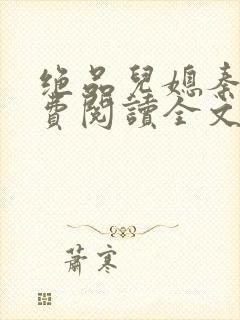 绝品兒媳秦
費閱讀全文
蕭寒